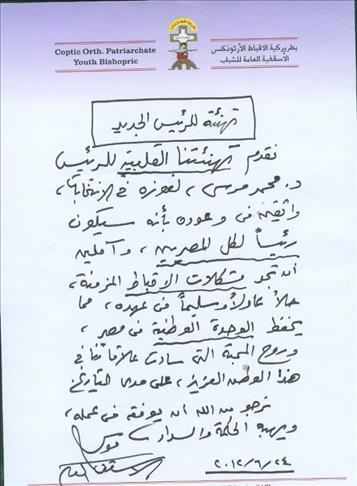 Coptic Orth. Patriarchate
Youth Bishopric
بطريركية الاقباط الأرثوذكس
الاسقفية العامة للشباب
تهنئة للرئيس الجديد
نقدم تهنئتنا القلبية للرئيس
د. محمد مرسى، لفوزه فى الانتخابات،
واثقين فى وعوده بأنه سيكون
رئيساً لكل المصريين، وآملين
أن تحل مشكلات الأقباط المزمنة،
حلاً عادلاً وسليماً فى عهده، مما
يحفظ الوحدة الوطنية فى مصر،
وروح المحبة التى سادت علاقاتنا فى
هذا الوطن العزيز، على مدى التاريخ
نرجو من الله أن يوفقه فى عمله،
ويهبه الحكمة والسداد
موسى
الأسقف العام
٢٠١٢/٦/٢٤